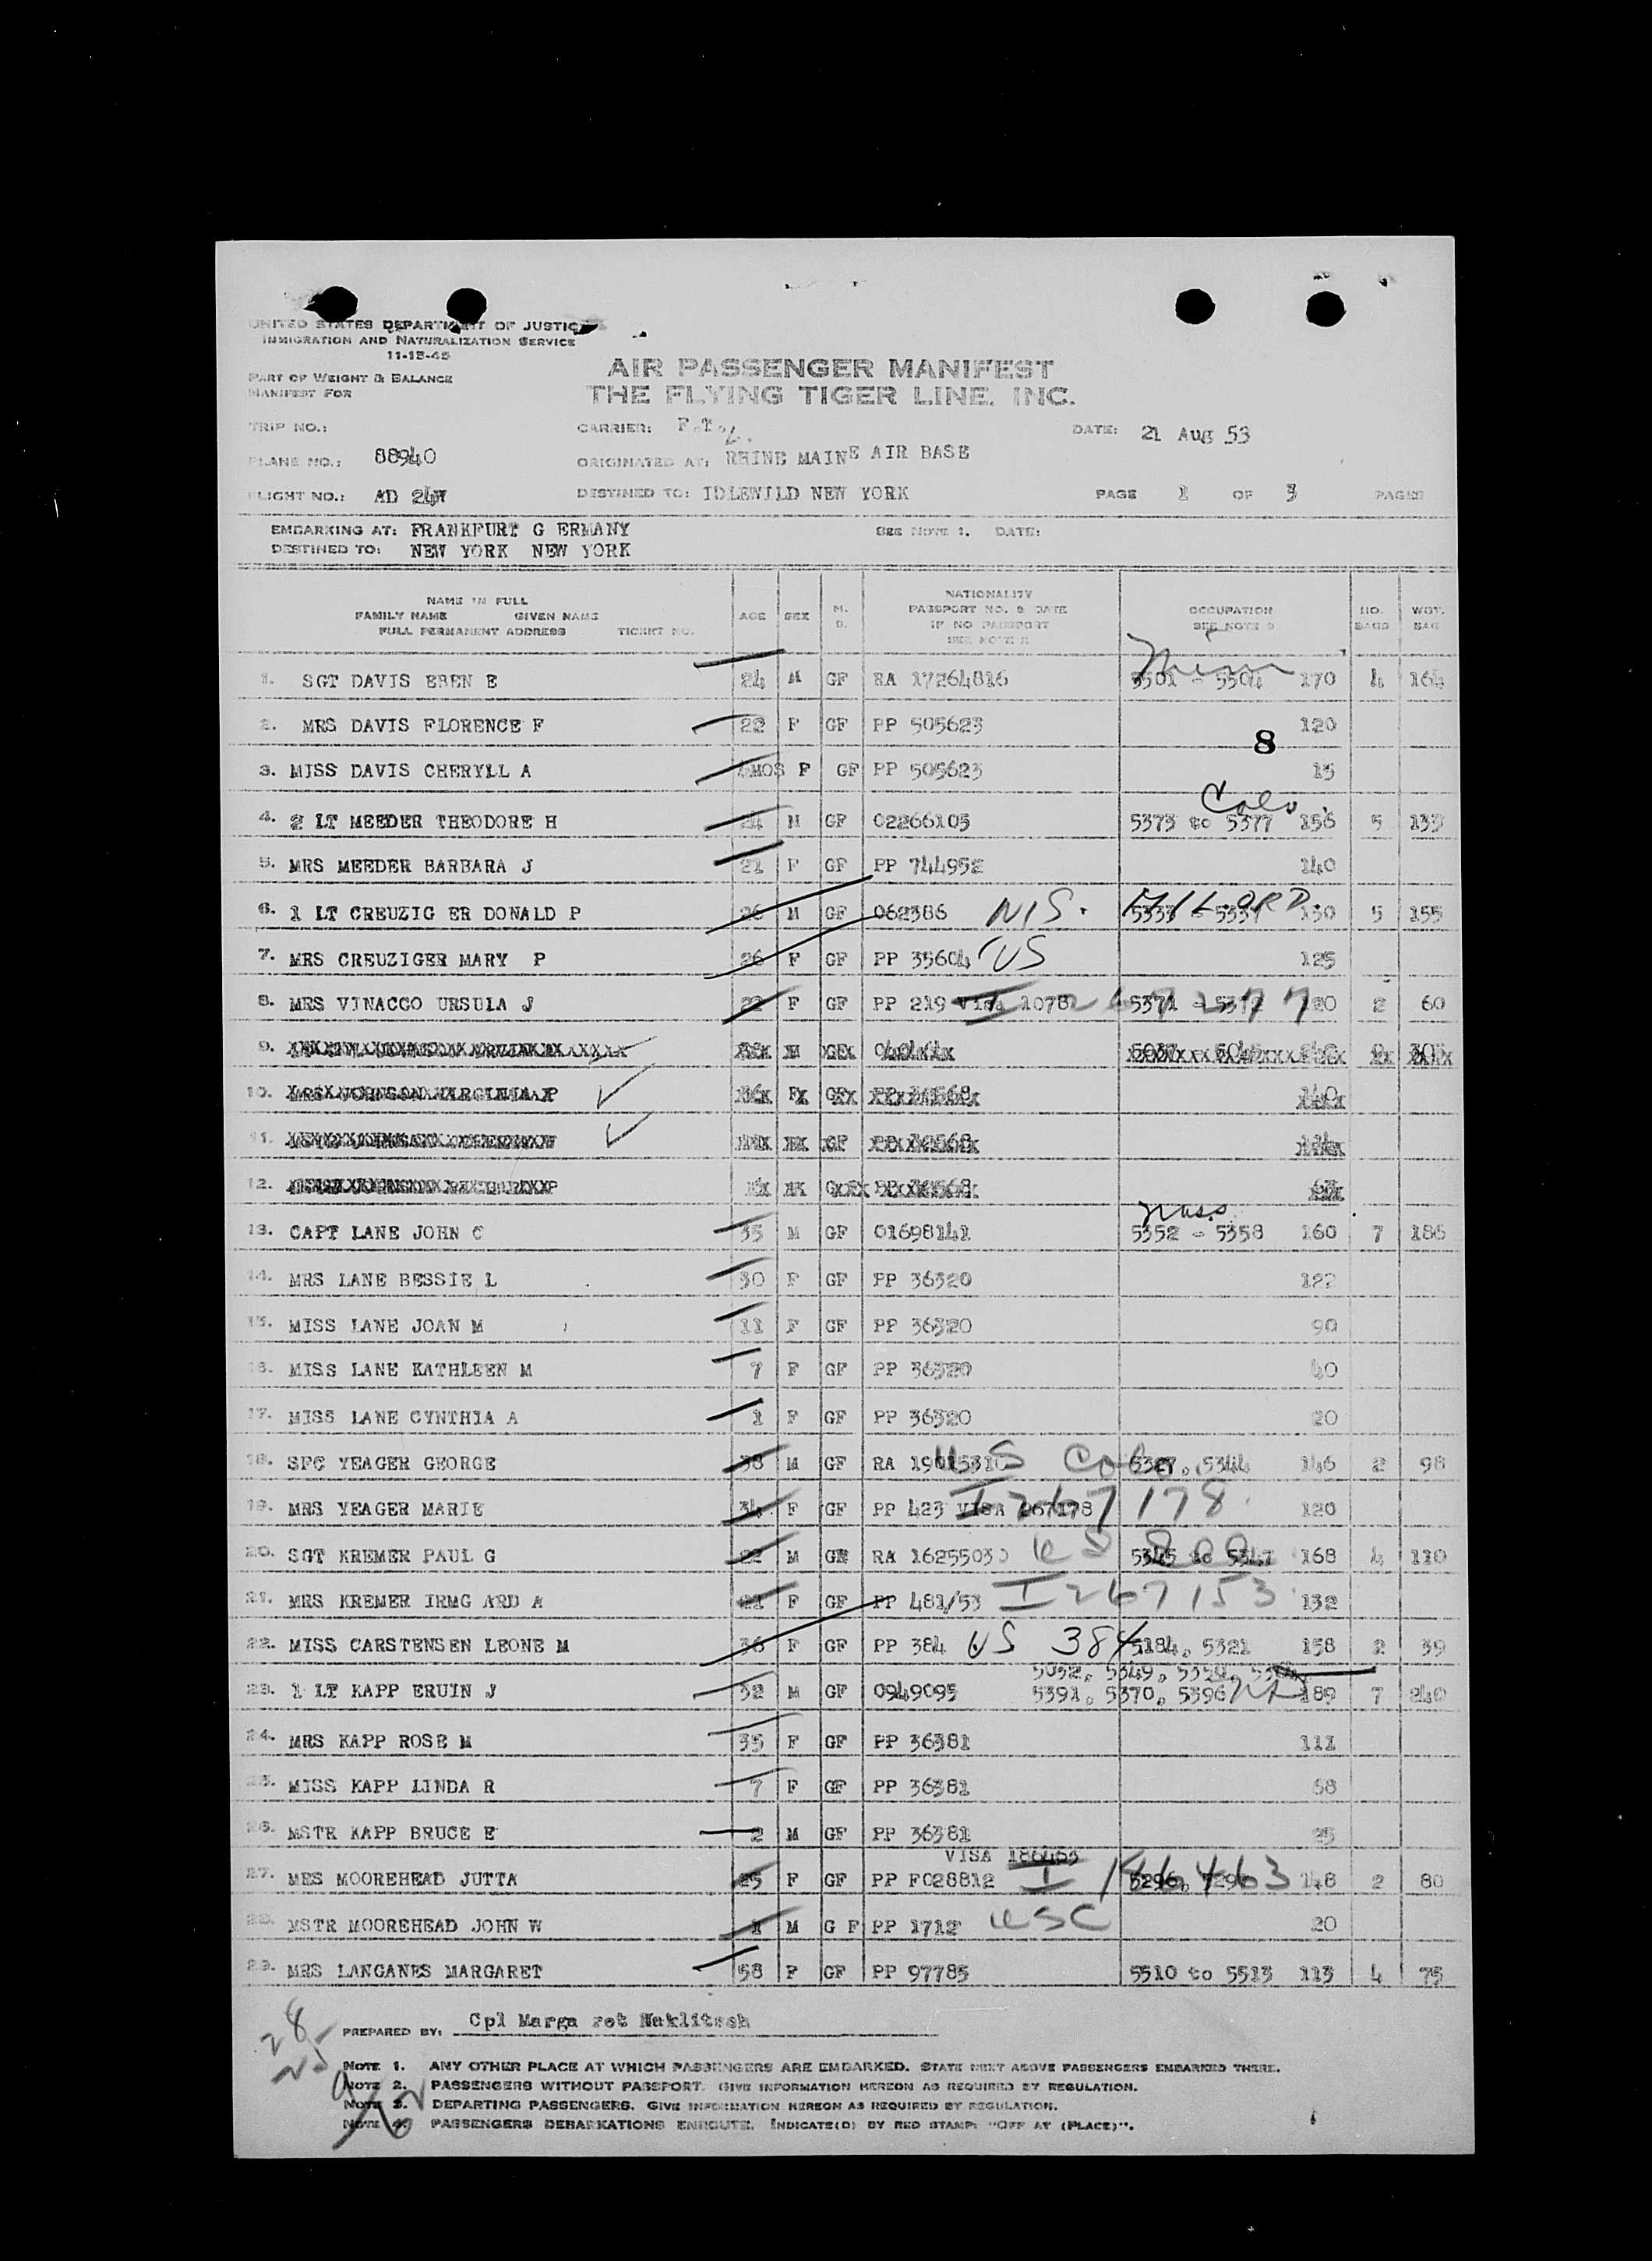 UNITED STATES DEPARTMENT OF JUSTICE
IMMIGRATION AND NATURALIZATION SERVICE
11-15-45
PART OF WEIGHT & BALANCE
MANIFEST FOR
AIR PASSENGER MANIFEST
THE FLYING TIGER LINE, INC.
TRIP NO.: CARRIER: F.T.L. DATE: 21 Aug 53
PLANE NO.: 88940 ORIGINATED AT: RHINE MAINE AIR BASE
FLIGHT NO.: AD 24W DESTINED TO: IDLEWILD NEW YORK PAGE 1 OF 3 PAGES
EMBARKING AT: FRANKFURT G ERMANY SEE NOTE 1. DATE:
DESTINED TO: NEW YORK NEW YORK
NAME IN FULL
FAMILY NAME GIVEN NAME
FULL PERMANENT ADDRESS TICKET NO.
AGE SEX M. S.
NATIONALITY
PASSPORT NO. & DATE
IF NO PASSPORT
SEE NOTE 2
OCCUPATION
SEE NOTE 3
NO. BAGS
WGT. BAG
1. SGT DAVIS EBEN E 24 M GF RA 17264816 5501 - 5504 170 4 164
2. MRS DAVIS FLORENCE F 22 F GF PP 505623 120
8
3. MISS DAVIS CHERYLL A MOS F GF PP 505623 15
Colo.
4. 2 LT MEEDER THEODORE H 24 M GF 02266105 5373 to 5377 156 5 133
5. MRS MEEDER BARBARA J 21 F GF PP 744952 140
6. 1 LT CREUZIG ER DONALD P 26 M GF 062386 N/S. MIL. ORD. 5 155
7. MRS CREUZIGER MARY P 26 F GF PP 35604 US 125
8. MRS VINACCO URSULA J 22 F GF PP 219 Visa 1078 5371 - 5372 2 60
9.
10.
11.
12.
Mass.
13. CAPT LANE JOHN C 35 M GF 01698141 5352 - 5358 160 7 186
14. MRS LANE BESSIE L 30 F GF PP 36320 122
15. MISS LANE JOAN M 11 F GF PP 36320 90
16. MISS LANE KATHLEEN M 7 F GF PP 36320 40
17. MISS LANE CYNTHIA A 1 F GF PP 36320 20
18. SFC YEAGER GEORGE 38 M GF US Colo 5344 146 2 98
19. MRS YEAGER MARIE 34 F GF PP 423 VISA 267178 I 267178 120
20. SGT KREMER PAUL G 22 M GF RA 16255030 5345 to 5347 168 4 110
21. MRS KREMER IRMG ARD A 21 F GF PP 481/53 I 267153 132
22. MISS CARSTENSEN LEONE M 36 F GF PP 384 US 384 5184, 5321 158 2 39
5032, 5349, 5350,
23. 1 LT KAPP ERUIN J 32 M GF 0949095 5391, 5370, 5396 189 7 240
24. MRS KAPP ROSE M 35 F GF PP 36381 111
25. MISS KAPP LINDA R 7 F GF PP 36381 68
26. MSTR KAPP BRUCE E 2 M GF PP 36381 25
VISA 186463
27. MRS MOOREHEAD JUTTA 25 F GF PP FC28812 I 186463 148 2 80
28. MSTR MOOREHEAD JOHN W 1 M G F PP 1712 USC 20
29. MRS LANGANES MARGARET 58 F GF PP 97785 5510 to 5513 113 4 75
28
PREPARED BY: Cpl Marga ret Naklitsch
NOTE 1. ANY OTHER PLACE AT WHICH PASSENGERS ARE EMBARKED. STATE NEXT ABOVE PASSENGERS EMBARKED THERE.
NOTE 2. PASSENGERS WITHOUT PASSPORT. GIVE INFORMATION HEREON AS REQUIRED BY REGULATION.
NOTE 3. DEPARTING PASSENGERS. GIVE INFORMATION HEREON AS REQUIRED BY REGULATION.
NOTE 4. PASSENGERS DEBARKATIONS ENROUTE. INDICATE(D) BY RED STAMP: "OFF AT (PLACE)".